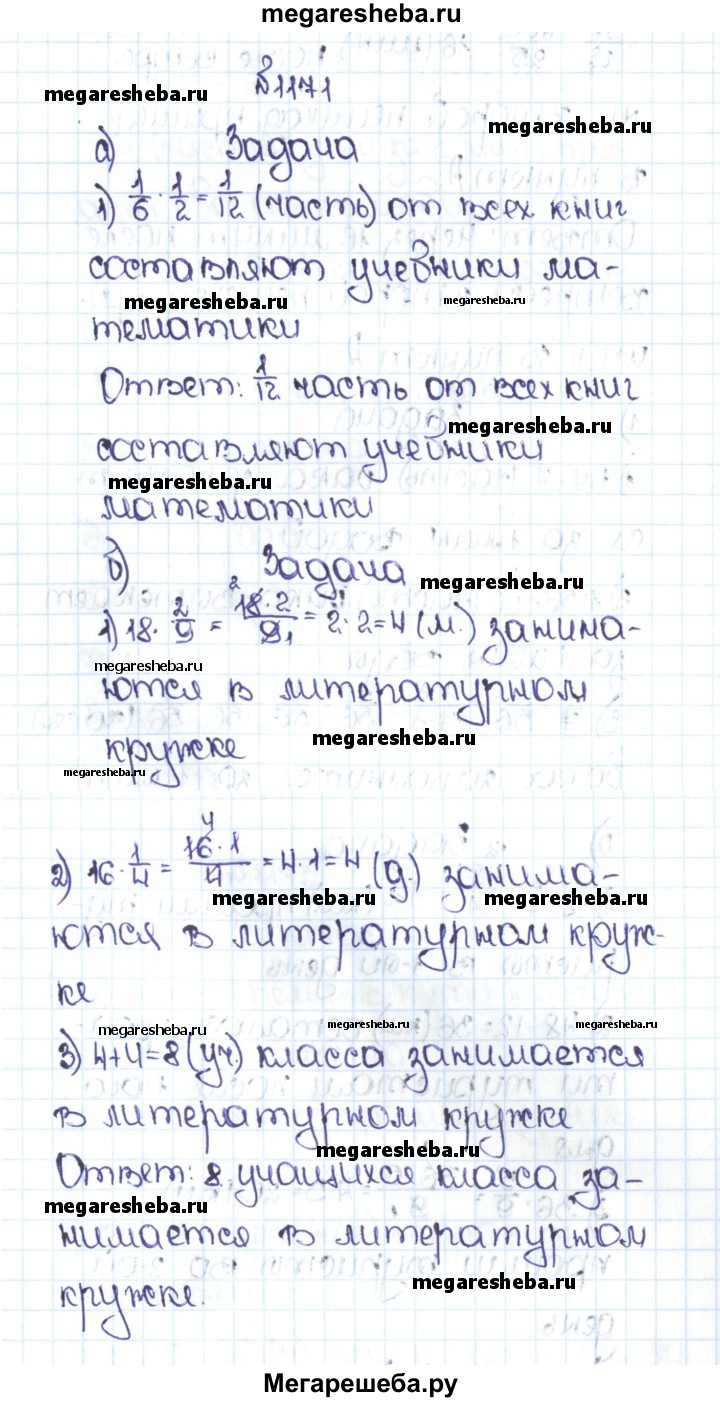 megaresheba.ru
№1171
megaresheba.ru
megaresheba.ru
а) Задача
1) 1/6 · 1/2 = 1/12 (часть) от всех книг
составляют учебники ма-
megaresheba.ru
megaresheba.ru
тематики
Ответ: 1/12 часть от всех книг
megaresheba.ru
составляют учебники
megaresheba.ru
математики
б) Задача
megaresheba.ru
1) 18 · 2/9 = 18 · 2/9 = 2 · 2 = 4 (м.) занима-
2
1
megaresheba.ru
ются в литературном
megaresheba.ru
кружке
megaresheba.ru
2) 16 · 1/4 = 16 · 1/4 = 4 · 1 = 4 (д.) занима-
4
megaresheba.ru
megaresheba.ru
ются в литературном круж-
ке
megaresheba.ru
megaresheba.ru
megaresheba.ru
3) 4+4=8 (уч.) класса занимается
в литературном кружке
megaresheba.ru
Ответ: 8 учащихся класса за-
megaresheba.ru
нимается в литературном
megaresheba.ru
кружке.
Мегарешеба.ру